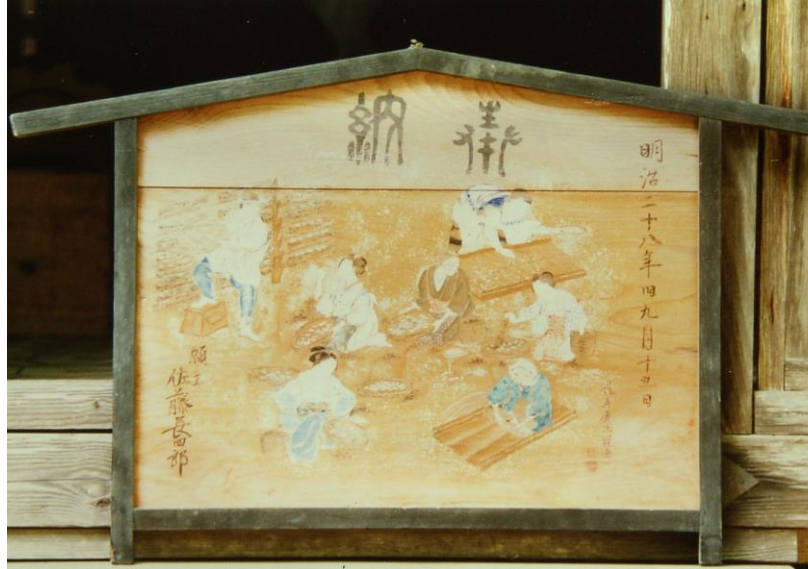 奉納
明治二十八年旧九月十九日
願主
佐藤長四郎